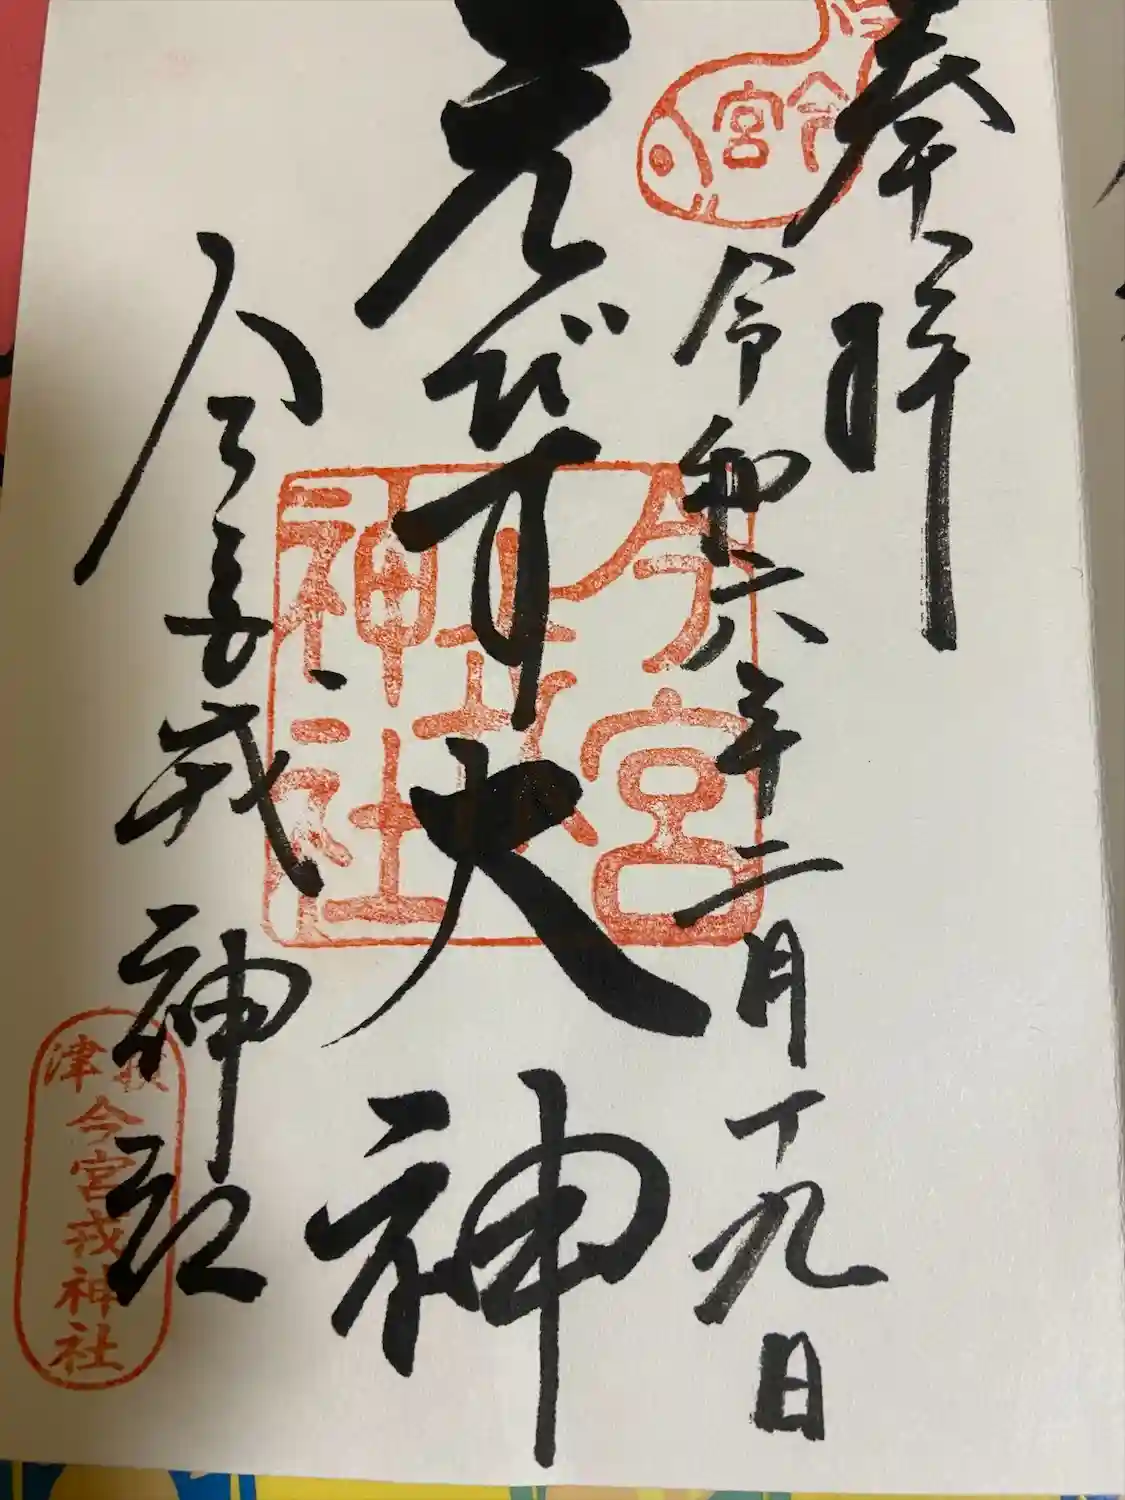 奉拝
令和六年二月十九日
えびす大神
今宮戎神社
今宮
今宮
戎
神社
摂津
今宮戎神社